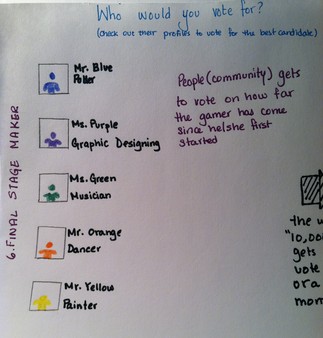 Who would you vote for?
(check out their profiles to vote for the best candidate)
6. FINAL STAGE MAKER
Mr. Blue
Ms. Purple
Graphic Designing
Ms. Green
Musician
Mr. Orange
Dancer
Mr. Yellow
Painter
People (community) gets
to vote on how far
the gamer has come
since he/she first
started
the
"10,00
gets
vote
or a
mom